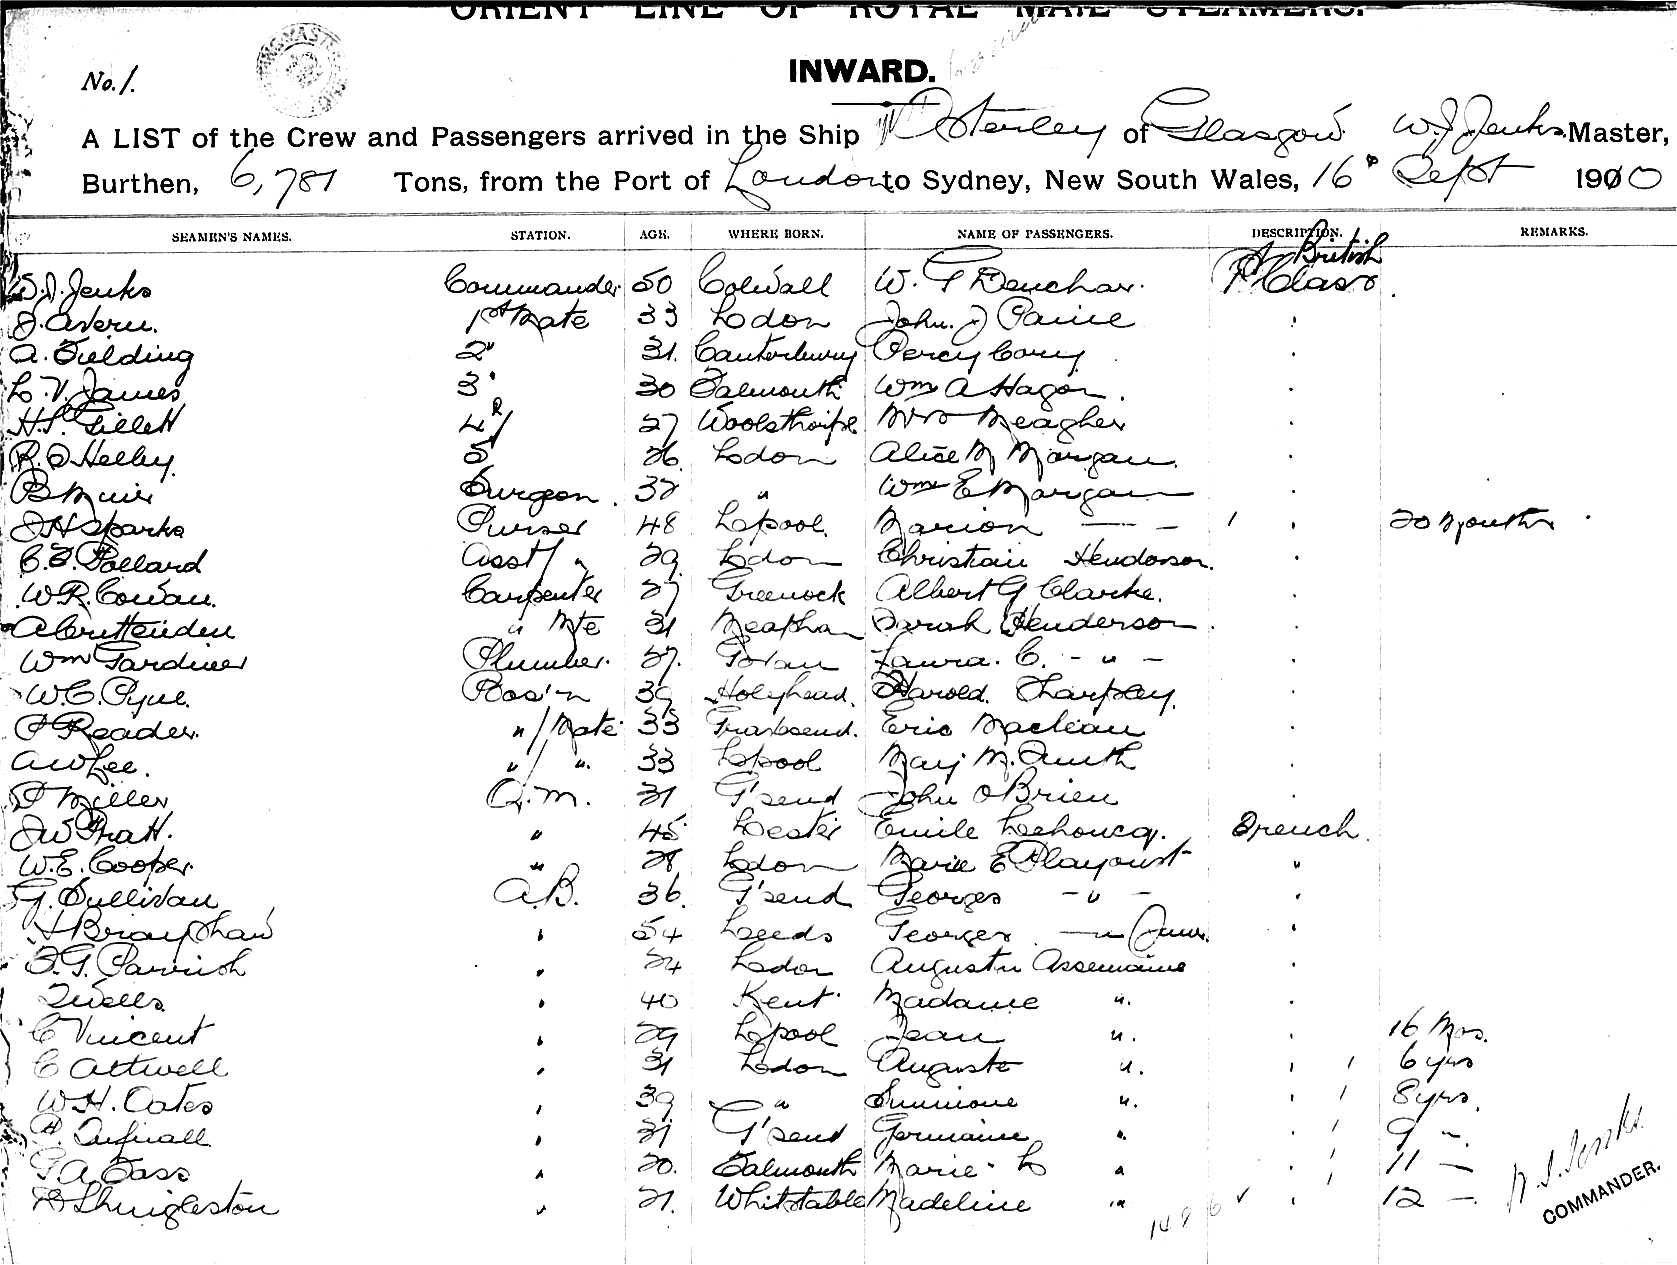 ORIENT LINE OF ROYAL MAIL STEAMERS.
INWARD.
No. 1.
A LIST of the Crew and Passengers arrived in the Ship Osterley of Glasgow W.J. Jenks Master,
Burthen, 6,781 Tons, from the Port of London to Sydney, New South Wales, 16 Sept 1910
SEAMEN'S NAMES. STATION. AGE. WHERE BORN. NAME OF PASSENGERS. DESCRIPTION. REMARKS.
British
W.J. Jenks Commander 50 Colwall W. G Deuchar. Class
J. Avern. 1st Mate 33 Lodon John. J Paine
A. Fielding 2" 31. Canterbury Percy Cory
L. V. James 3" 30 Falmouth Wm A Hagon.
H.S. Gillett 4 27 Woolsthorpe Mrs Meagher
R. O Helby. 5 26. Lodon Alice M Morgan.
B Muir Surgeon. 32 " Wm E Morgan
J H Sparks Purser 48 Lpool. Marion — — 20 Months
C. F. Pollard Asst/ " 29 Lodon Christian Henderson.
W.R. Cowan. Carpenter 27 Greenock Albert G Clarke.
A Cruttenden " Mte 31 Meapham Sarah Henderson
Wm Gardiner Plumber. 27. Govan Laura. C. - " -
W.C. Pyne. Bos'n 39 Holyhead. Harold Sharpley.
Reader. "/Mate 33 Gravesend. Eric Maclean
A W Lee. "/ ". 33 Lpool May M. Smith
Miller Q.M. 31 G'send John O'Brien
J W Pratt. " 45 Lester Emile Lechoucq. French.
W.E. Cooper. " 28 Lodon Marie E Playoust "
G. Sullivan A.B. 36. G'send Georges - " -
H Brayshaw " 54 Leeds Georges — " Junr.
F. G. Parrish " 24 Lodon Augustin Assemaine
Wells " 40 Kent Madame ".
C Vincent " 29 Lpool Jean ". 16 Mos.
C Attwell " 31 Lodon Auguste ". 6 yrs
W.H. Oates " 39 " Simione ". 8 yrs.
Tufnall " 31 G'send Germaine " 9 ".
G A Bass " 20. Falmouth Marie. L " 11 —
Shrigleston " 21. Whitstable Madeline " 12 —
W. J. Jenks
COMMANDER.